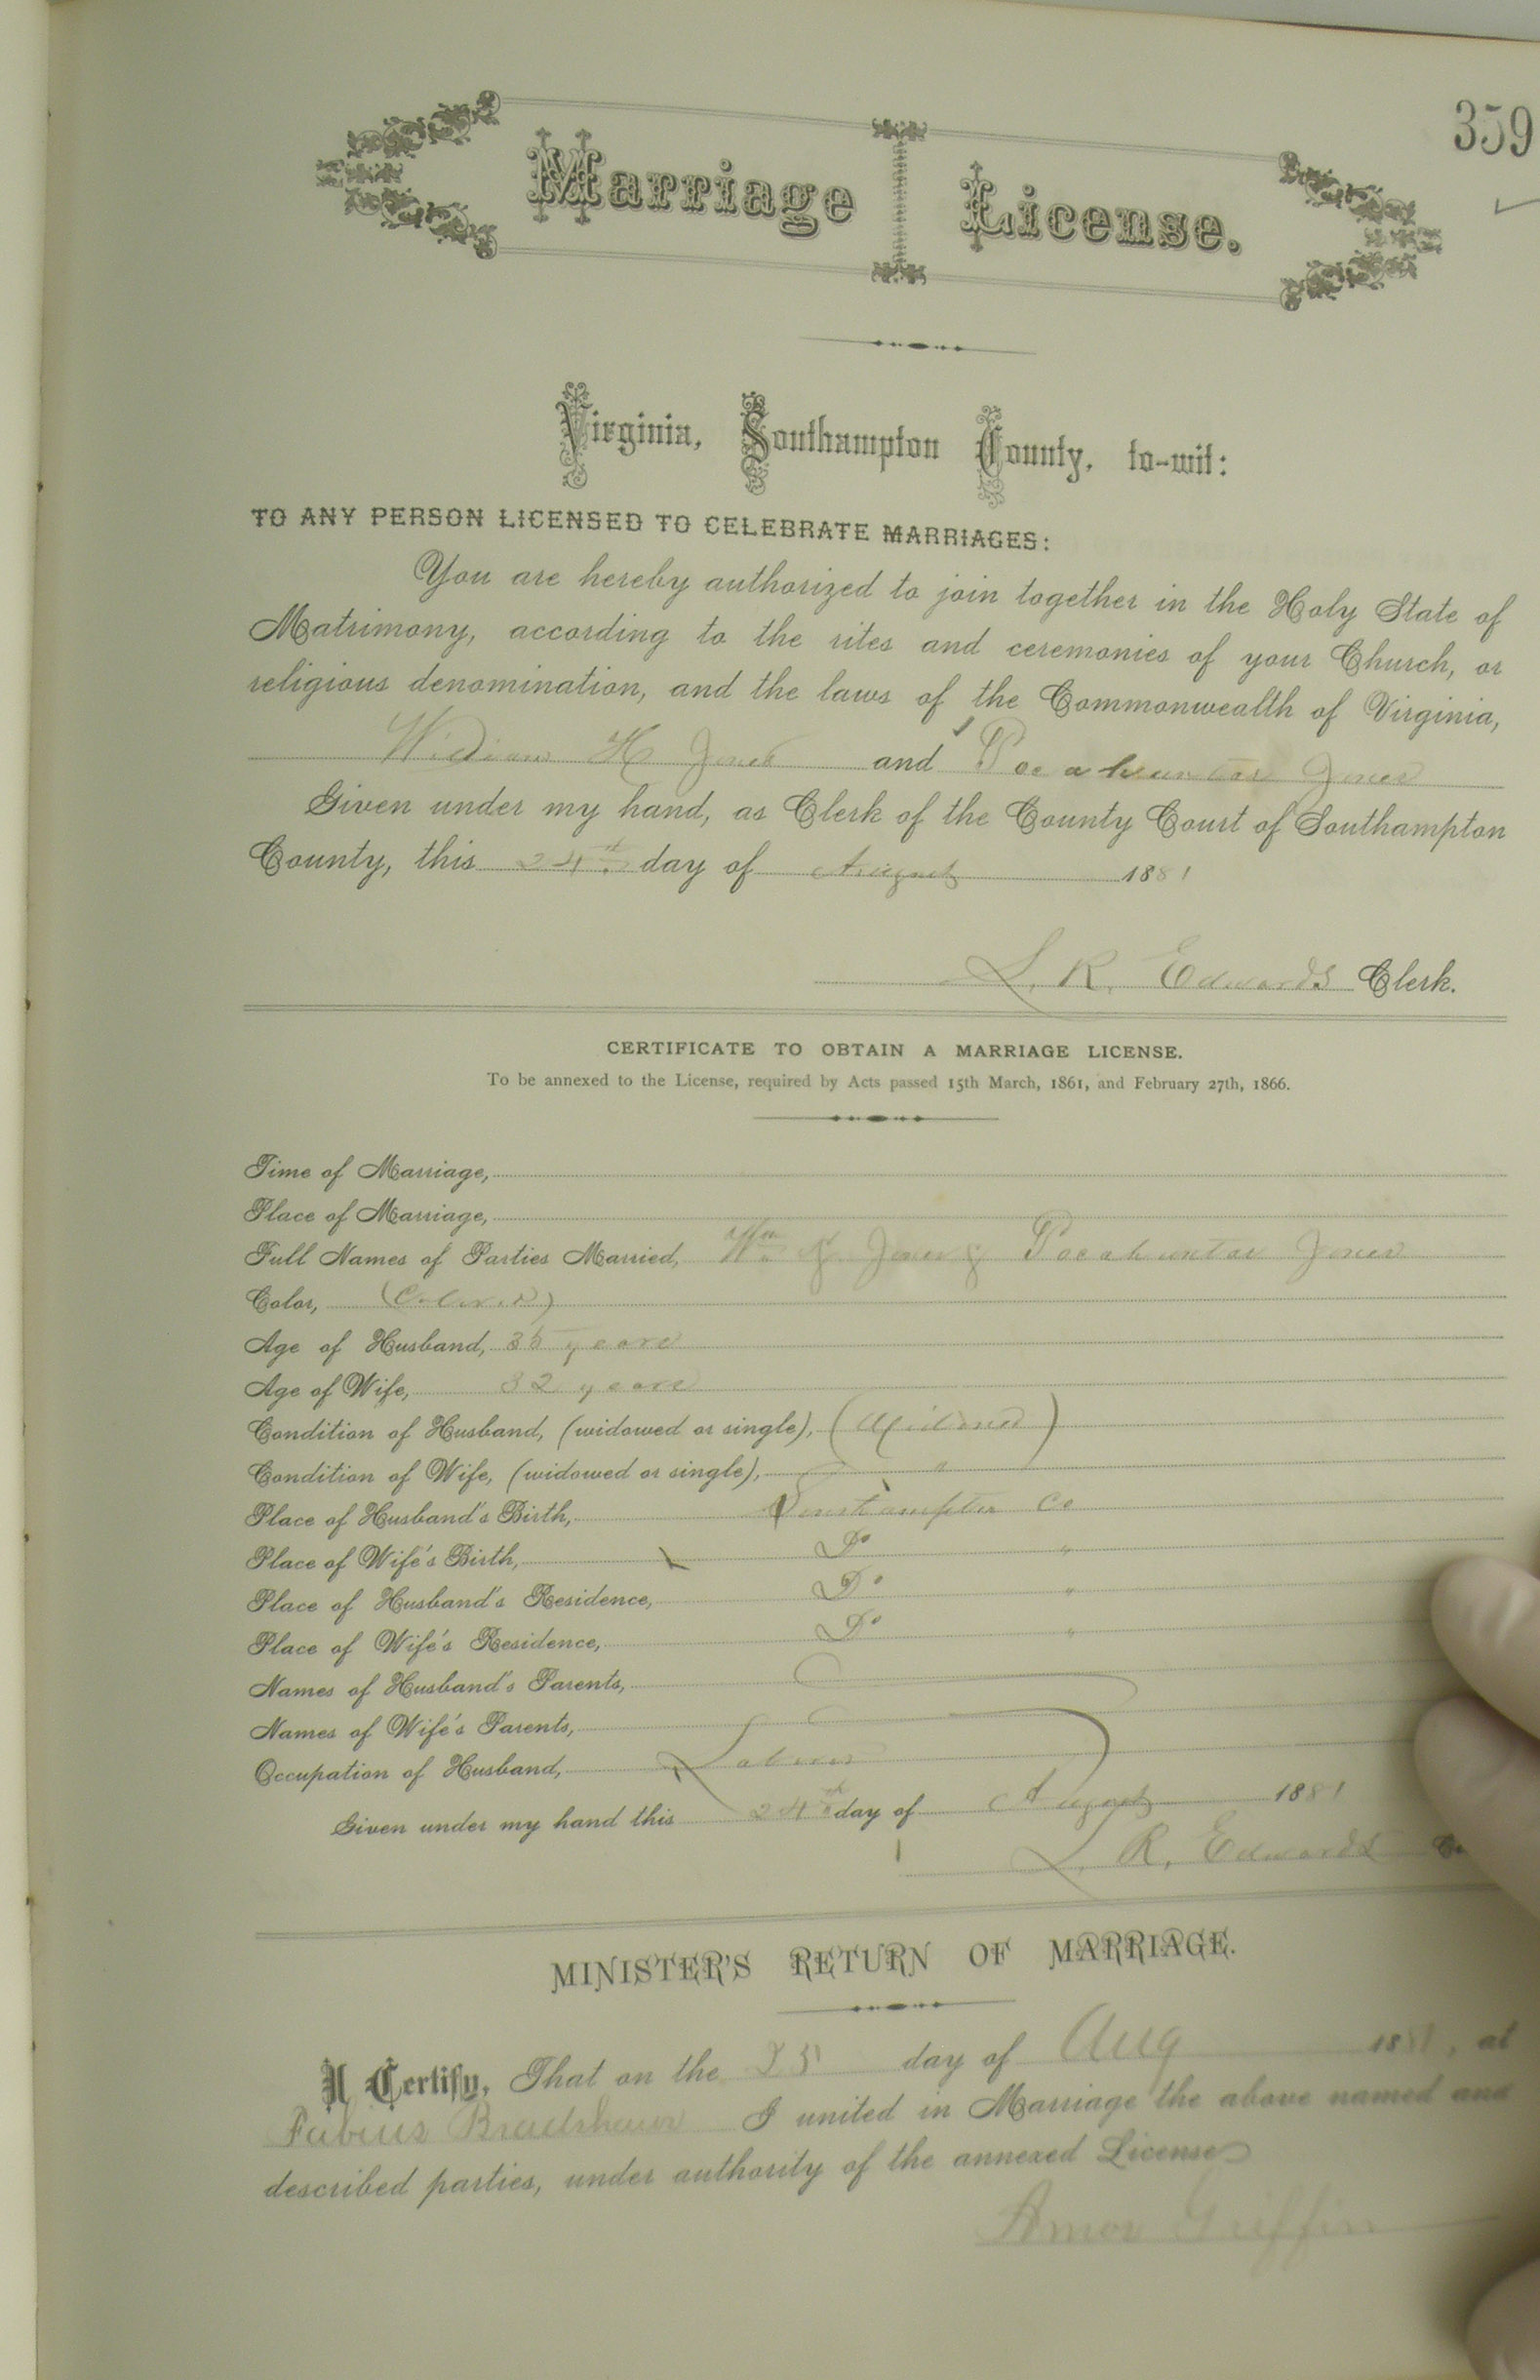 359
Marriage License.
Virginia, Southampton County, to-wit:
TO ANY PERSON LICENSED TO CELEBRATE MARRIAGES:
You are hereby authorized to join together in the Holy State of
Matrimony, according to the rites and ceremonies of your Church, or
religious denomination, and the laws of the Commonwealth of Virginia,
William H Jones and Pocahuntas Jones
Given under my hand, as Clerk of the County Court of Southampton
County, this 24th day of August 1881
L. R. Edwards Clerk.
CERTIFICATE TO OBTAIN A MARRIAGE LICENSE.
To be annexed to the License, required by Acts passed 15th March, 1861, and February 27th, 1866.
Time of Marriage,
Place of Marriage,
Full Names of Parties Married, Wm H. Jones & Pocahuntas Jones
Color, (Colored)
Age of Husband, 35 years
Age of Wife, 32 years
Condition of Husband, (widowed or single), (Widowed)
Condition of Wife, (widowed or single), "
Place of Husband's Birth, Southampton Co
Place of Wife's Birth, Do "
Place of Husband's Residence, Do "
Place of Wife's Residence, Do "
Names of Husband's Parents,
Names of Wife's Parents,
Occupation of Husband, Laborer
Given under my hand this 24th day of August 1881
L. R. Edwards
MINISTER'S RETURN OF MARRIAGE.
I Certify, That on the 25 day of Aug 1881, at
Fabius Bradshaw I united in Marriage the above named and
described parties, under authority of the annexed License
Amos Griffin